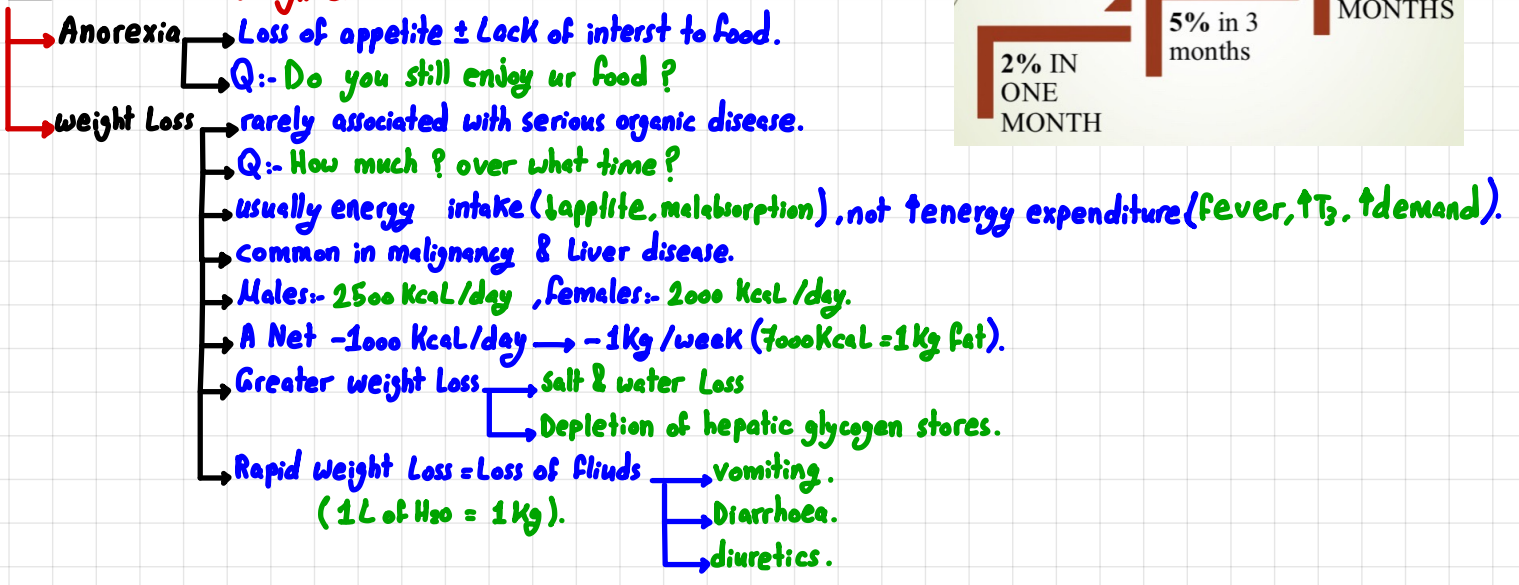 Anorexia
Loss of appetite ± Lack of interst to food.
Q:- Do you still enjoy ur food ?
weight Loss
rarely associated with serious organic disease.
Q:- How much ? over what time ?
usually energy intake (↓applite, malabsorption), not ↑energy expenditure (fever, ↑T3, ↑demand).
common in malignancy & Liver disease.
Males:- 2500 Kcal/day , females:- 2000 Kcal/day.
A Net -1000 Kcal/day → -1Kg/week (7000Kcal = 1Kg fat).
Greater weight Loss
salt & water Loss
Depletion of hepatic glycogen stores.
Rapid weight Loss = Loss of fliuds
(1L of H2O = 1Kg).
vomiting.
Diarrhoea.
diuretics.
MONTHS
5% in 3
months
2% IN
ONE
MONTH